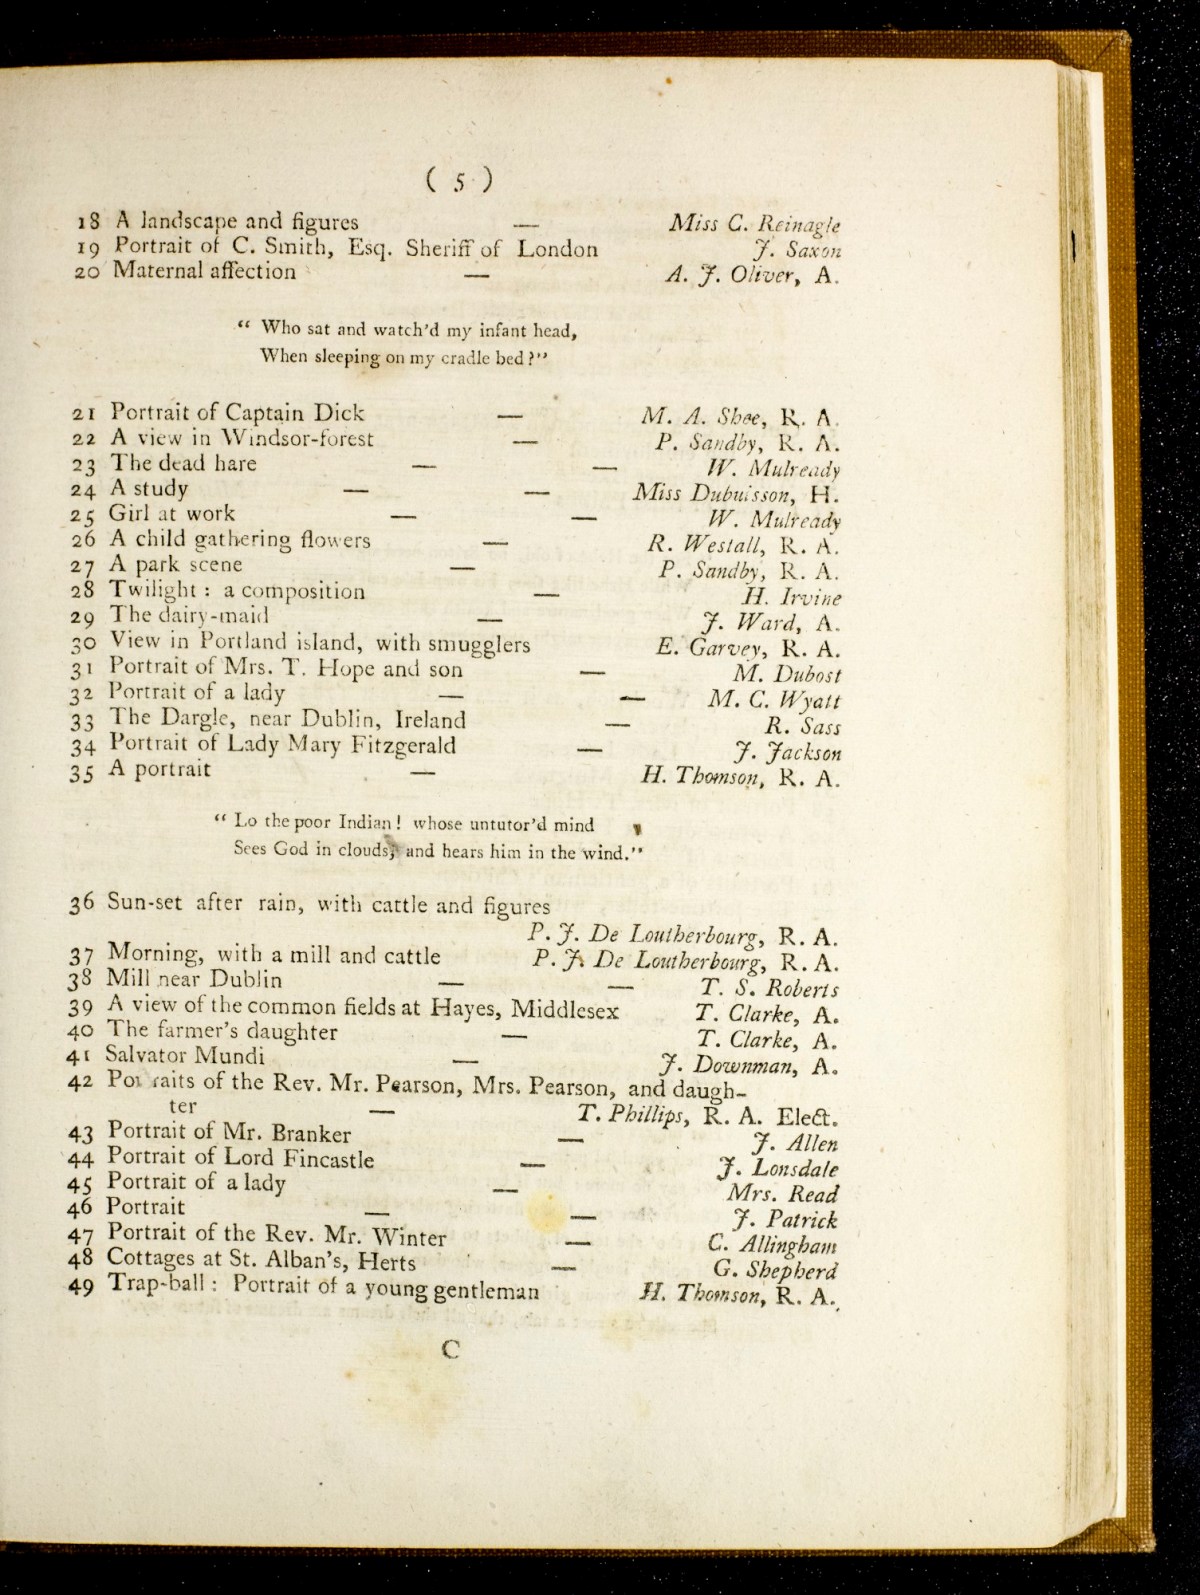 ( 5 )
18 A landscape and figures — Miss C. Reinagle
19 Portrait of C. Smith, Esq. Sheriff of London J. Saxon
20 Maternal affection — A. J. Oliver, A.
“ Who sat and watch'd my infant head,
When sleeping on my cradle bed?”
21 Portrait of Captain Dick — M. A. Shee, R. A.
22 A view in Windsor-forest — P. Sandby, R. A.
23 The dead hare — — W. Mulready
24 A study — — Miss Dubuisson, H.
25 Girl at work — — W. Mulready
26 A child gathering flowers — R. Westall, R. A.
27 A park scene — P. Sandby, R. A.
28 Twilight : a composition — H. Irvine
29 The dairy-maid — J. Ward, A.
30 View in Portland island, with smugglers E. Garvey, R. A.
31 Portrait of Mrs. T. Hope and son — M. Dubost
32 Portrait of a lady — — M. C. Wyatt
33 The Dargle, near Dublin, Ireland — R. Sass
34 Portrait of Lady Mary Fitzgerald — J. Jackson
35 A portrait — H. Thomson, R. A.
“ Lo the poor Indian! whose untutor'd mind
Sees God in clouds, and hears him in the wind.”
36 Sun-set after rain, with cattle and figures
P. J. De Loutherbourg, R. A.
37 Morning, with a mill and cattle P. J. De Loutherbourg, R. A.
38 Mill near Dublin — — T. S. Roberts
39 A view of the common fields at Hayes, Middlesex T. Clarke, A.
40 The farmer's daughter — T. Clarke, A.
41 Salvator Mundi — J. Downman, A.
42 Portraits of the Rev. Mr. Pearson, Mrs. Pearson, and daugh-
ter — T. Phillips, R. A. Elect.
43 Portrait of Mr. Branker — J. Allen
44 Portrait of Lord Fincastle — J. Lonsdale
45 Portrait of a lady — Mrs. Read
46 Portrait — — J. Patrick
47 Portrait of the Rev. Mr. Winter — C. Allingham
48 Cottages at St. Alban's, Herts — G. Shepherd
49 Trap-ball : Portrait of a young gentleman H. Thomson, R. A.
C